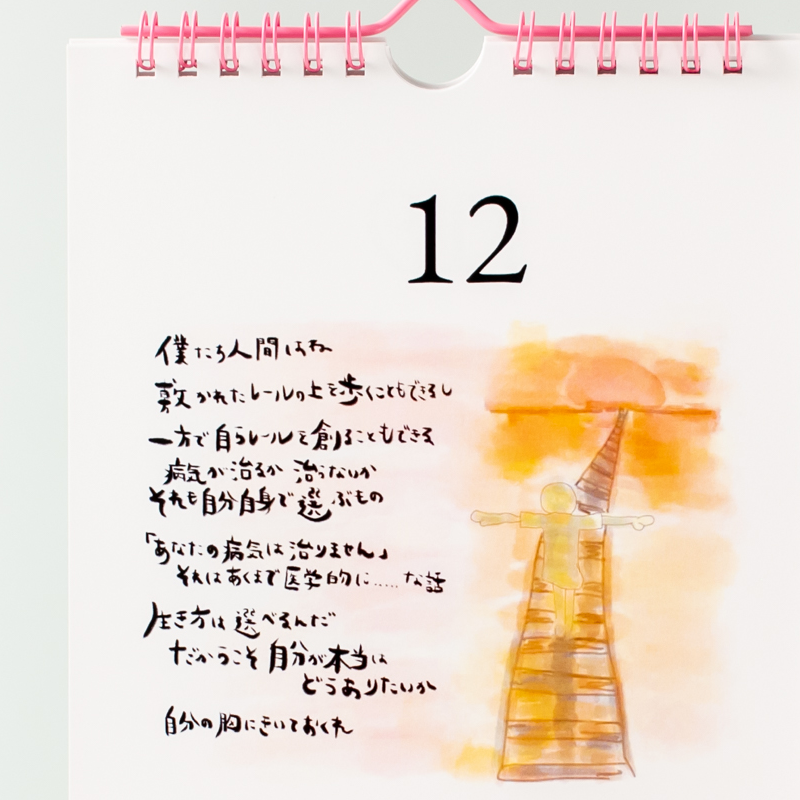 12
僕たち人間はね
敷かれたレールの上を歩くこともできるし
一方で自らレールを創ることもできる
病気が治るか 治らないか
それも自分自身で選ぶもの
「あなたの病気は治りません」
それはあくまで医学的に……な話
生き方は選べるんだ
だからこそ自分が本当は
どうありたいか
自分の胸にきいておくれ